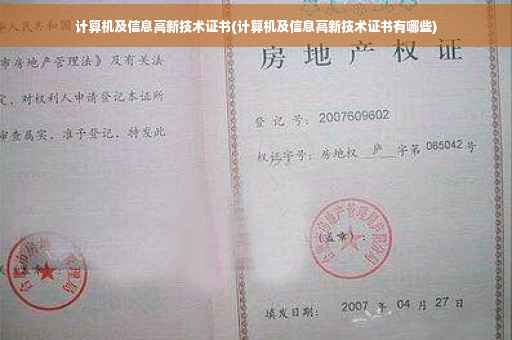 计算机及信息高新技术证书(计算机及信息高新技术证书有哪些)
华人民共和国
市房地产管理法》及有关法
定，对权利人申请登记本证所
审查属实，准予登记，特发此
房地产权证
登记号：2007609602
权证字号：房地权 庐 字第 065042 号
(盖章)：
填发日期： 2007 年 04 月 27 日